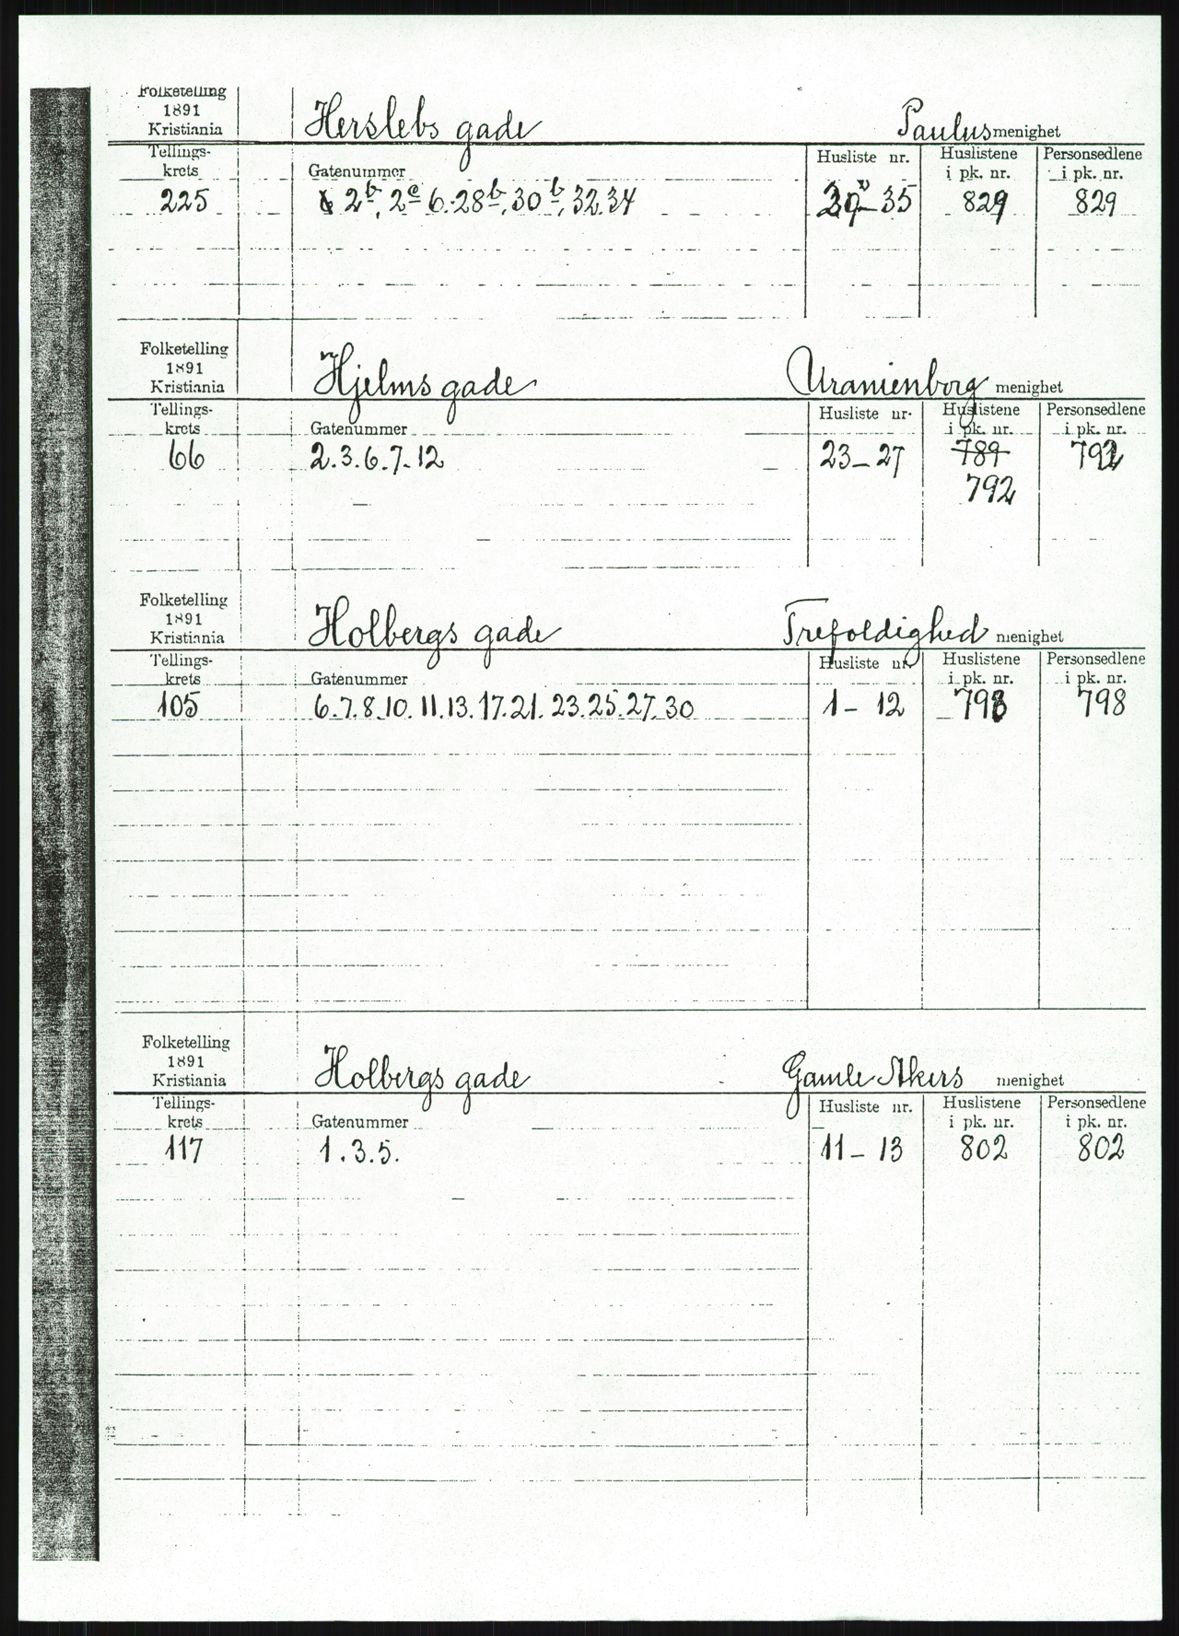 Folketelling
1891
Kristiania
Herslebs gade
Paulus menighet
Tellings-
krets
Gatenummer
Husliste nr.
Huslistene
i pk. nr.
Personsedlene
i pk. nr.
225
2b, 2c 6-28b, 30b, 32. 34
-35
829
829
Folketelling
1891
Kristiania
Hjelms gade
Uranienborg menighet
Tellings-
krets
Gatenummer
Husliste nr.
Huslistene
i pk. nr.
Personsedlene
i pk. nr.
66
2.3.6.7-12
23-27
789
792
792
Folketelling
1891
Kristiania
Holbergs gade
Trefoldighed menighet
Tellings-
krets
Gatenummer
Husliste nr.
Huslistene
i pk. nr.
Personsedlene
i pk. nr.
105
6.7.8.10.11.13.17.21.23.25.27.30
1-12
798
798
Folketelling
1891
Kristiania
Holbergs gade
Gamle Akers menighet
Tellings-
krets
Gatenummer
Husliste nr.
Huslistene
i pk. nr.
Personsedlene
i pk. nr.
117
1.3.5.
11-13
802
802